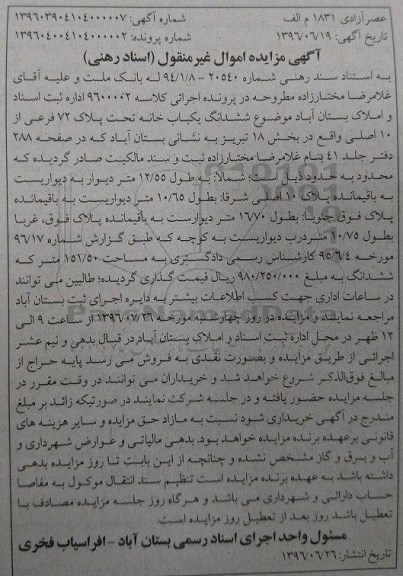 عصرآزادی ۱۸۳۱ م الف
شماره آگهی: ۱۳۹۶۰۳۹۰۴۱۰۴۰۰۰۰۰۷
تاریخ آگهی: ۱۳۹۶/۰۶/۱۹
شماره پرونده: ۱۳۹۶۰۴۰۰۴۱۰۴۰۰۰۰۰۲
آگهی مزایده اموال غیرمنقول (اسناد رهنی)
به استناد سند رهنی شماره ۲۰۵۴۰ - ۹۴/۱/۸ له بانک ملت و علیه آقای
غلامرضا مختارزاده مطروحه در پرونده اجرائی کلاسه ۹۶۰۰۰۰۲ اداره ثبت اسناد
و املاک بستان آباد موضوع ششدانگ یکباب خانه تحت پلاک ۷۲ فرعی از
۱۰ اصلی واقع در بخش ۱۸ تبریز به نشانی بستان آباد که در صفحه ۲۸۸
دفتر جلد ۴۱ بنام غلامرضا مختارزاده ثبت و سند مالکیت صادر گردیده که
محدود به حدود ذیل است: شمالا: به طول ۱۲/۵۵ متر دیوار به دیواریست
به باقیمانده پلاک ۱۰ اصلی شرقا: بطول ۱۰/۶۵ متر دیواریست به باقیمانده
پلاک فوق جنوبا: بطول ۱۶۷۰ متر دیواریست به باقیمانده پلاک فوق، غربا
بطول ۱۰/۷۵ متردرب دیواریست به کوچه که طبق گزارش شماره ۹۶/۱۷
مورخه ۹۵/۶/۴ کارشناس رسمی دادگستری به مساحت ۱۵۱/۵۰ متر که
ششدانگ به مبلغ ۹۸۰/۲۵۰/۰۰۰ ریال قیمت گذاری گردیده؛ طالبین می توانند
در ساعات اداری جهت کسب اطلاعات بیشتر به دایره اجرای ثبت بستان آباد
مراجعه نمایند و مزایده در روز چهارشنبه مورخه ۱۳۹۶/۰۷/۲۶ از ساعت ۹ الی
۱۲ ظهر در محل اداره ثبت اسناد و املاک بستان آباد در قبال بدهی و نیم عشر
اجرائی از طریق مزایده و بصورت نقدی به فروش می رسد پایه حراج از
مبالغ فوق‌الذکر شروع خواهد شد و خریداران می توانند در وقت مقرر در
جلسه مزایده حضور یافته و در جلسه شرکت نمایند در صورتیکه زائد بر مبلغ
مندرج در آگهی خریداری شود نسبت به مازاد حق مزایده و سایر هزینه های
قانونی برعهده برنده مزایده خواهد بود. بدهی مالیاتی و عوارض شهرداری و
آب و برق و گاز مشخص نشده و چنانچه از این بابت تا روز مزایده بدهی
داشته باشد به عهده برنده مزایده است تنظیم سند انتقال موکول به مفاصا
حساب دارائی و شهرداری می باشد و هرگاه روز جلسه مزایده مصادف با
تعطیل باشد روز بعد از تعطیل روز مزایده است.
مسئول واحد اجرای اسناد رسمی بستان آباد - افراسیاب فخری
تاریخ انتشار: ۱۳۹۶/۰۶/۲۶